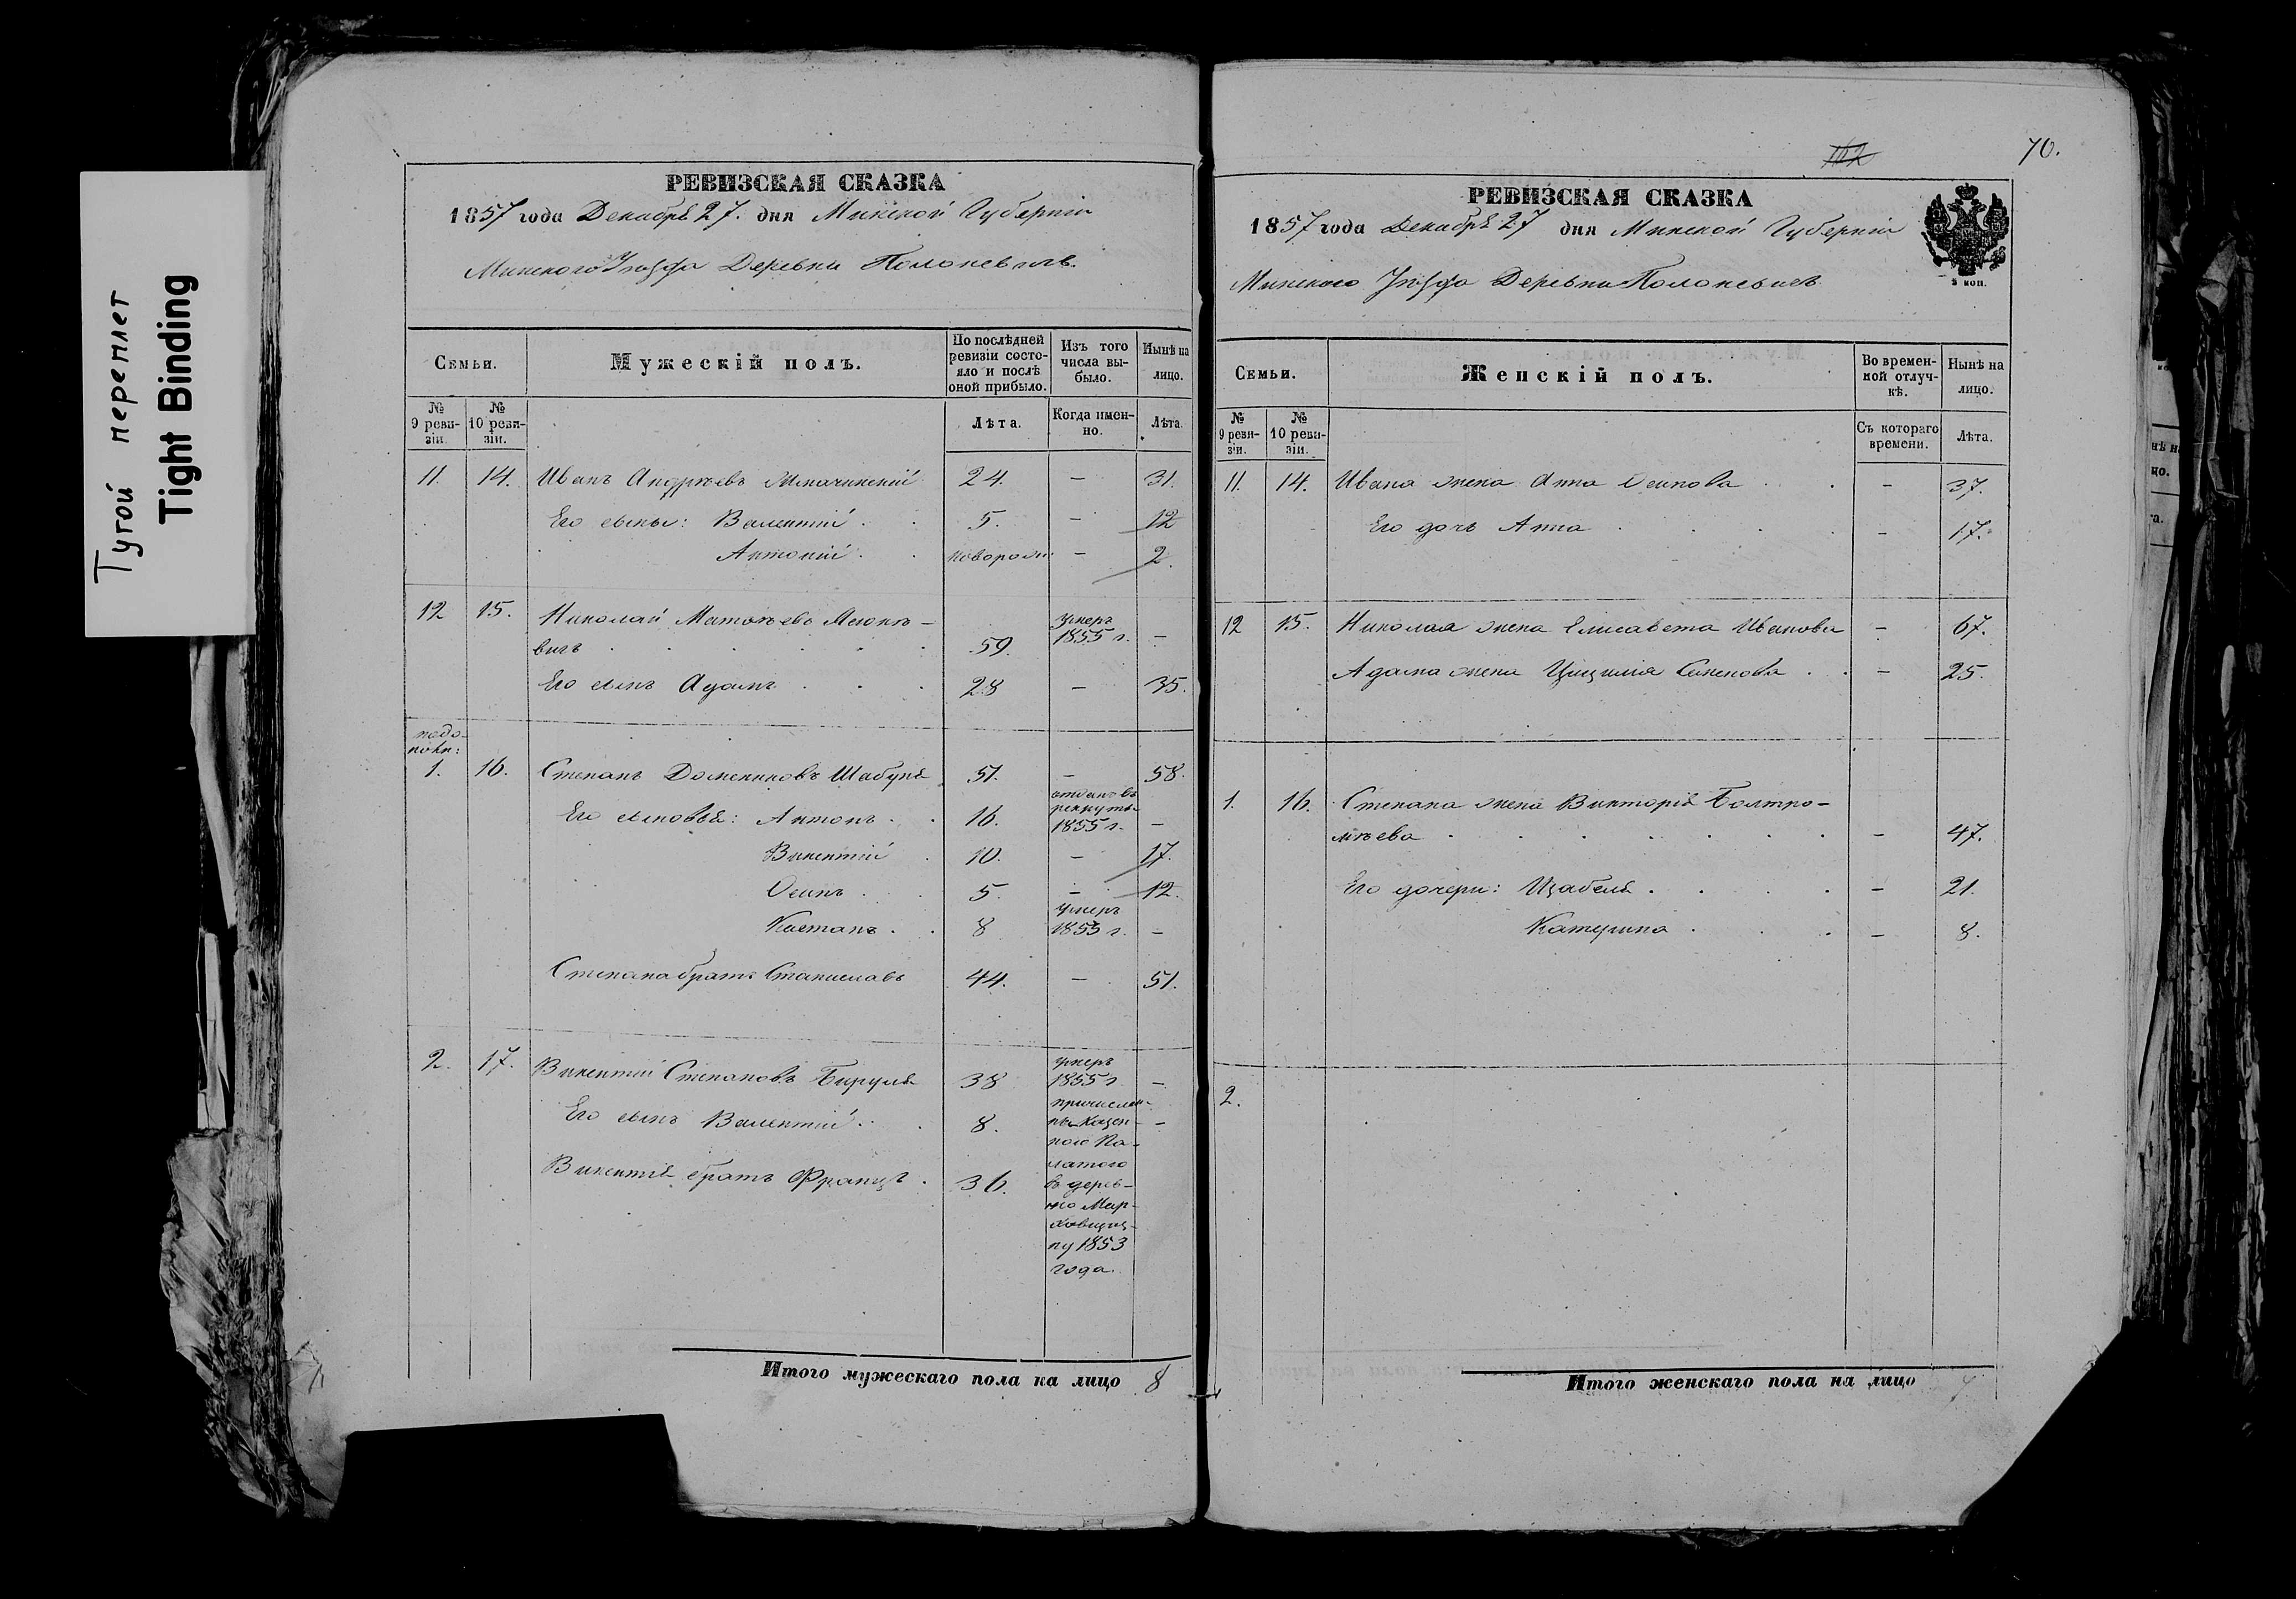 Тугой переплет
Tight Binding
РЕВИЗСКАЯ СКАЗКА
1857 года Декабря 27. дня Минской Губерніи
Минского Уѣзда Деревни
Семьи.
Мужескій полъ.
По послѣдней ревизіи состояло и послѣ оной прибыло.
Изъ того числа выбыло.
Нынѣ на лицо.
№ 9 ревизіи.
№ 10 ревизіи.
Лѣта.
Когда именно.
Лѣта.
11. 14. Иванъ Андреевъ 24. — 31.
Его сыны: Валентій 5. — 12
Антоній новорож: — 2.
12 15. Николай Матвѣевъ
вичъ 59. умеръ 1855 г. —
Его сынъ Адамъ 28 — 35.
1. 16. Степанъ Домениковъ Шабуня 51. — 58.
Его сыновья: Антонъ 16. отданъ въ рекруты 1855 г. —
Викентій 10. — 17.
Осипъ 5. — 12.
Каетанъ 8 умеръ 1853 г. —
Степана братъ Станиславъ 44. — 51.
2. 17. Викентій Степановъ Бируля 38 умеръ 1855 г. —
Его сынъ Валентій 8. —
Викентія братъ Францъ 36.
причислен
Казен-
ною Па-
латою
въ дерев-
ню Мар-
ну 1853
года.
Итого мужескаго пола на лицо 8
102
70.
РЕВИЗСКАЯ СКАЗКА
1857 года Декабря 27 дня Минской Губерніи
Минского Уѣзда Деревни
2 коп.
Семьи.
Женскій полъ.
Во временной отлучкѣ.
Нынѣ на лицо.
№ 9 ревизіи.
№ 10 ревизіи.
Съ котораго времени.
Лѣта.
11. 14. Ивана жена Анна Осипова — 37.
Его дочь Анна — 17.
12 15. Николая жена Елисавета Иванова — 67.
Адама жена Цицилія — 25.
1. 16. Степана жена Викторія Болтро-
мѣева — 47.
Его дочери: Изабеля — 21.
Катерина — 8.
2.
Итого женскаго пола на лицо 7